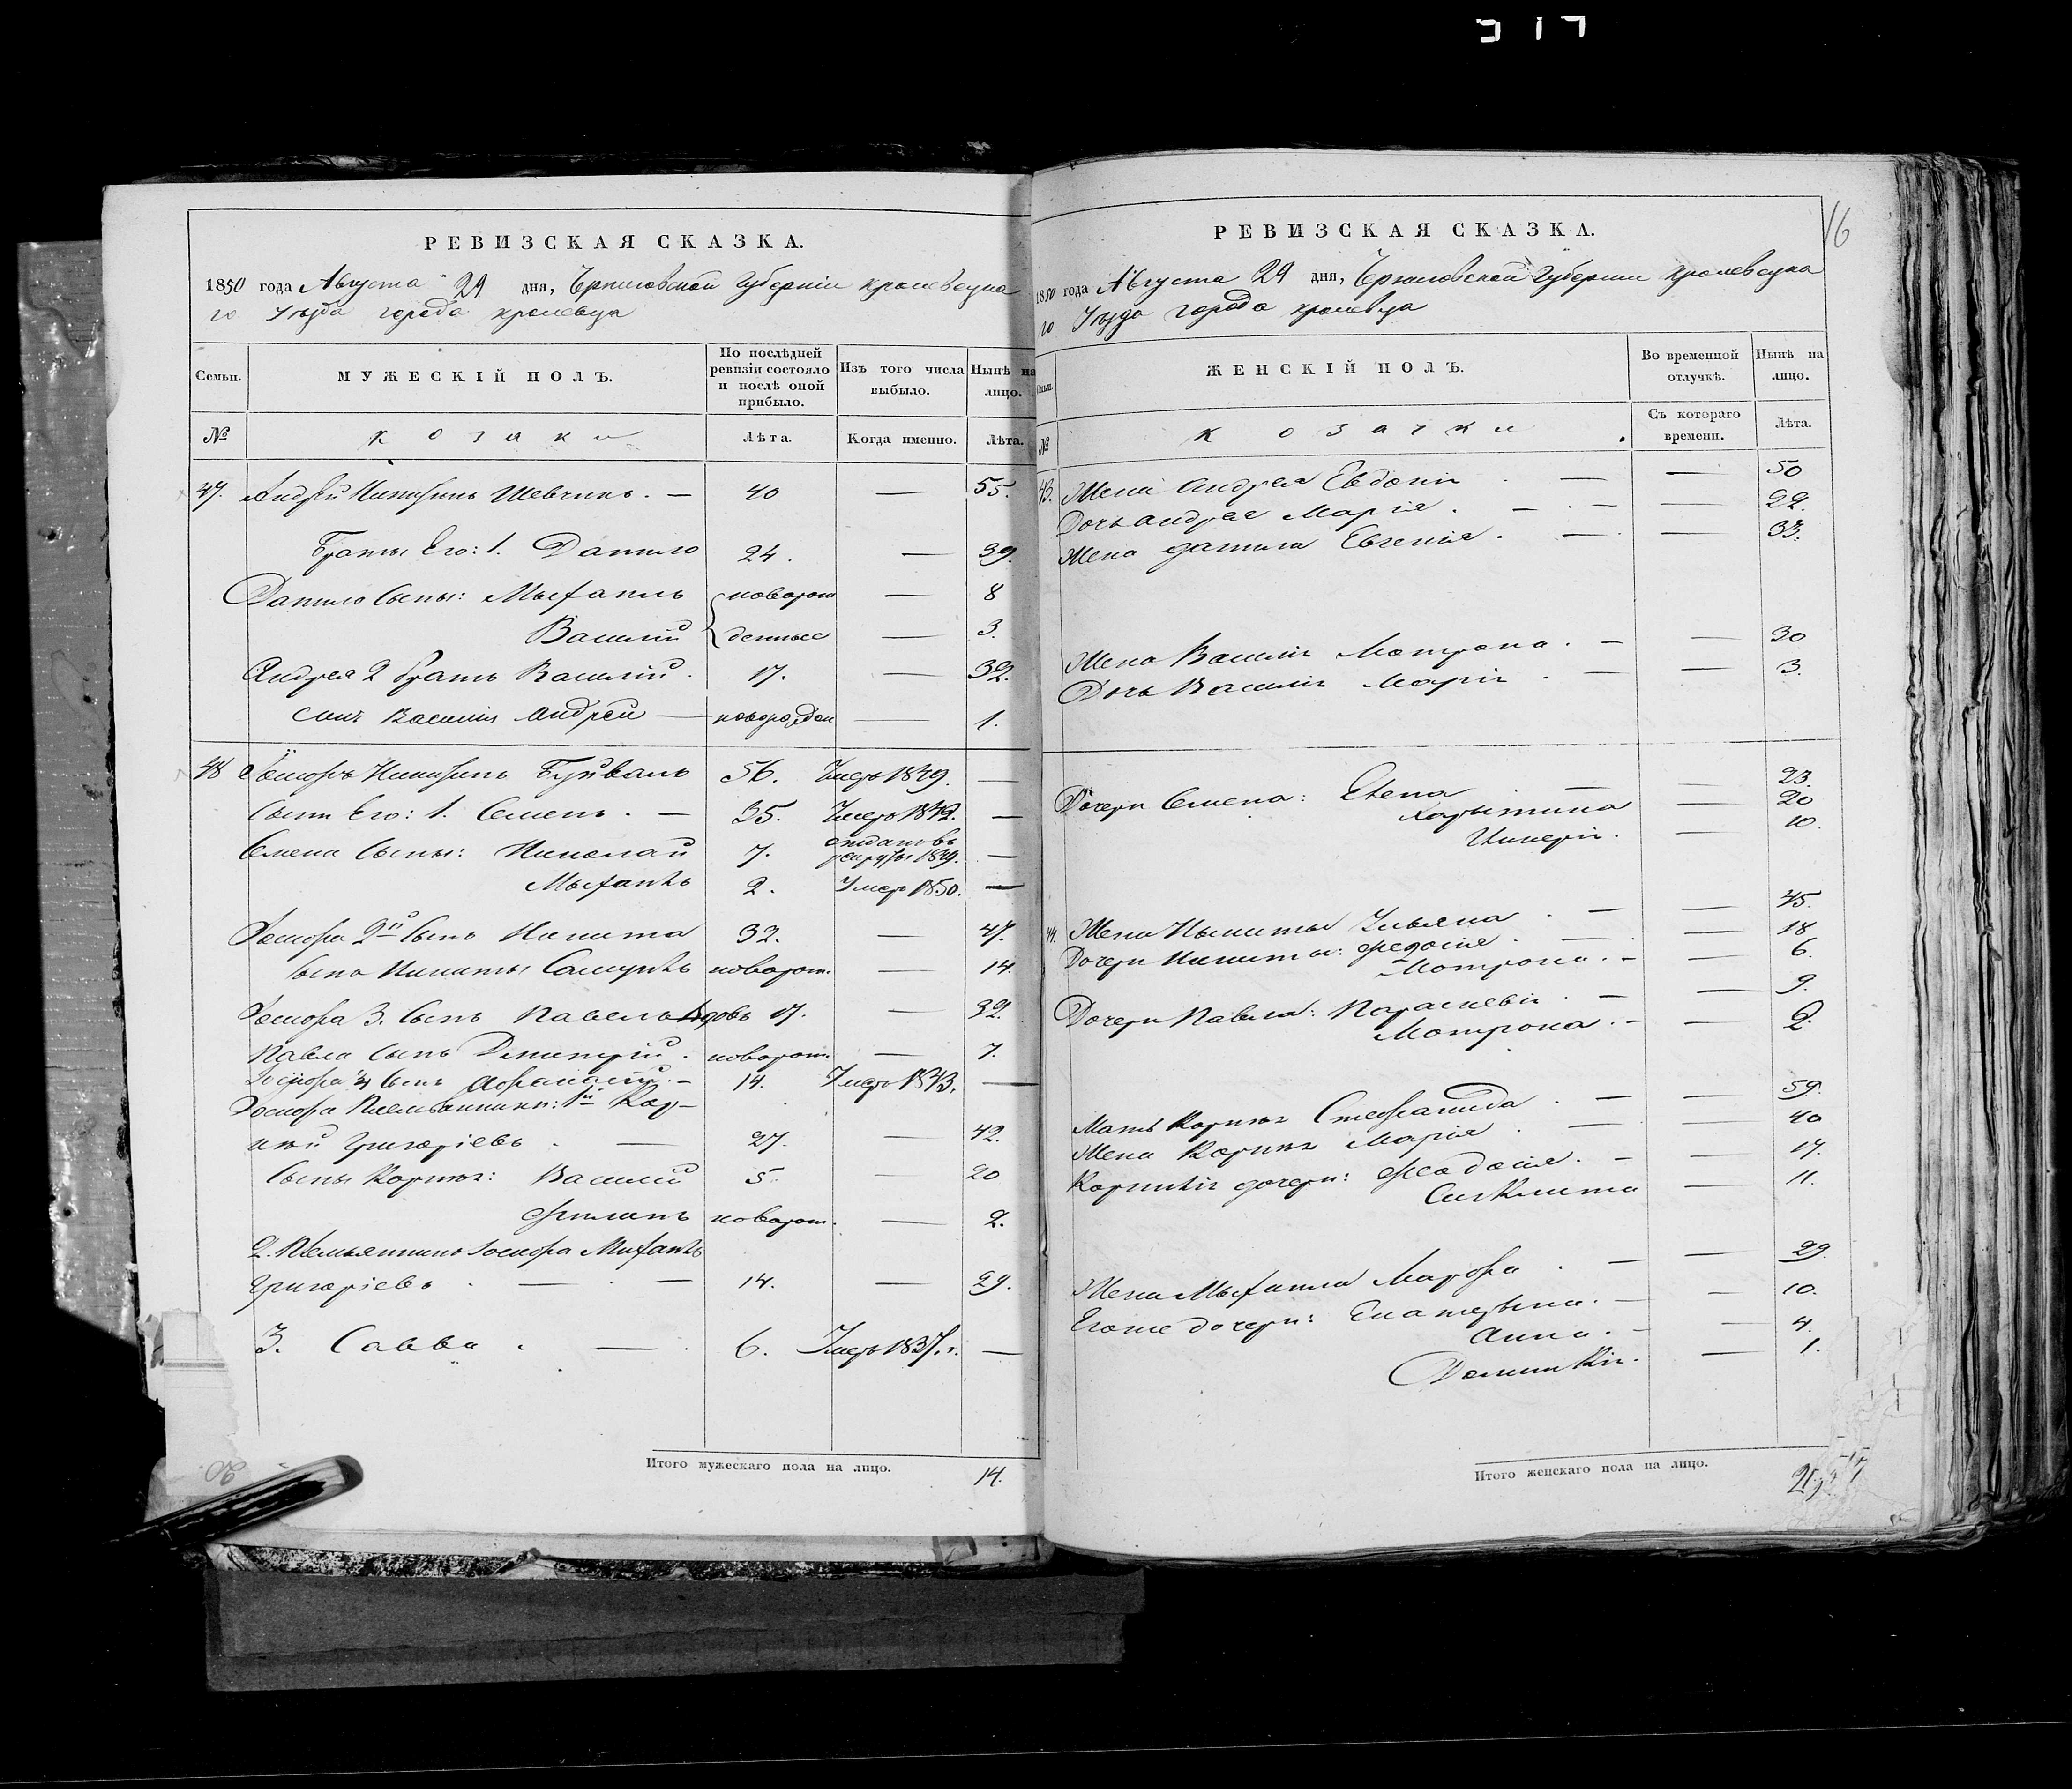 317
РЕВИЗСКАЯ СКАЗКА.
1850 года Августа 29 дня, Черниговской Губерніи кролевецка
го Уѣзда города кролевца
Семьи.
МУЖЕСКІЙ ПОЛЪ.
По послѣдней ревизіи состояло и послѣ оной прибыло.
Изъ того числа выбыло.
Нынѣ на лицо.
№
козаки
Лѣта.
Когда именно.
Лѣта.
47. Андрей Никитинъ Шевчикъ. — 40 — 55.
Браты Его: 1. Данило 24. — 39.
Данило сыны: Мыхаилъ новорож — 8
Василій денные — 3.
Андрея 2 братъ Василій. 17. — 32.
сынъ Василія Андрей — новорожден — 1.
48 Никитинъ 56. Умеръ 1849. —
сыны Его: 1. Семенъ. — 35. Умеръ 1842. —
Семена сыны: Николай 7. отданъ въ рекруты 1849. —
Мыхаилъ 2. Умеръ 1850. —
2й сынъ Никита 32. — 47.
сынъ Никиты новорож. — 14.
3. сынъ Павелъ вдовъ 17. — 32.
Павла сынъ Дмитрій. новорож. — 7.
4 сынъ Афанасій. — 14. Умеръ 1843. —
племянники: 1й Кор-
нѣй Григоріевъ. — 27. — 42.
сыны Корнѣя: Василій 5. — 20
новорож. — 2.
2. племянникъ Михаилъ
Григоріевъ. — — 14. — 29.
3. Савва. — 6. Умеръ 1837. г. —
Итого мужескаго пола на лицо. 14.
16
РЕВИЗСКАЯ СКАЗКА.
1850 года Августа 29 дня, Черниговской Губерніи кролевецка
го Уѣзда города кролевца
Семьи.
ЖЕНСКІЙ ПОЛЪ.
Во временной отлучкѣ.
Нынѣ на лицо.
№
козачки.
Съ котораго времени.
Лѣта.
43. Жена Андрея Евдокія. — — 50
Дочь Андрея Марія. — — — 22.
Жена Данила Евгенія. — — 33.
Жена Василія Мотрона. — — 30
Дочь Василія Марія. — — 3.
Дочери Семена: Елена. — — 23.
Харытина — 20
— 10.
44. Жена Никиты Ульяна. — — 45.
Дочери Никиты: Федосія. — — 18
Мотрона. — — 6.
Дочери Павла: Параскевія. — — 9.
Мотрона. — — 2.
Мать Корнѣя Стефанида. — — 59.
Жена Корнѣя Марія. — — 40
Корнѣія дочери: Феодосія. — — 17.
— 11.
Жена Мыхаила Марфа. — — 29.
Егоже дочери: Екатерына. — — 10.
Анна. — — 4.
Домникія. — 1.
Итого женскаго пола на лицо.